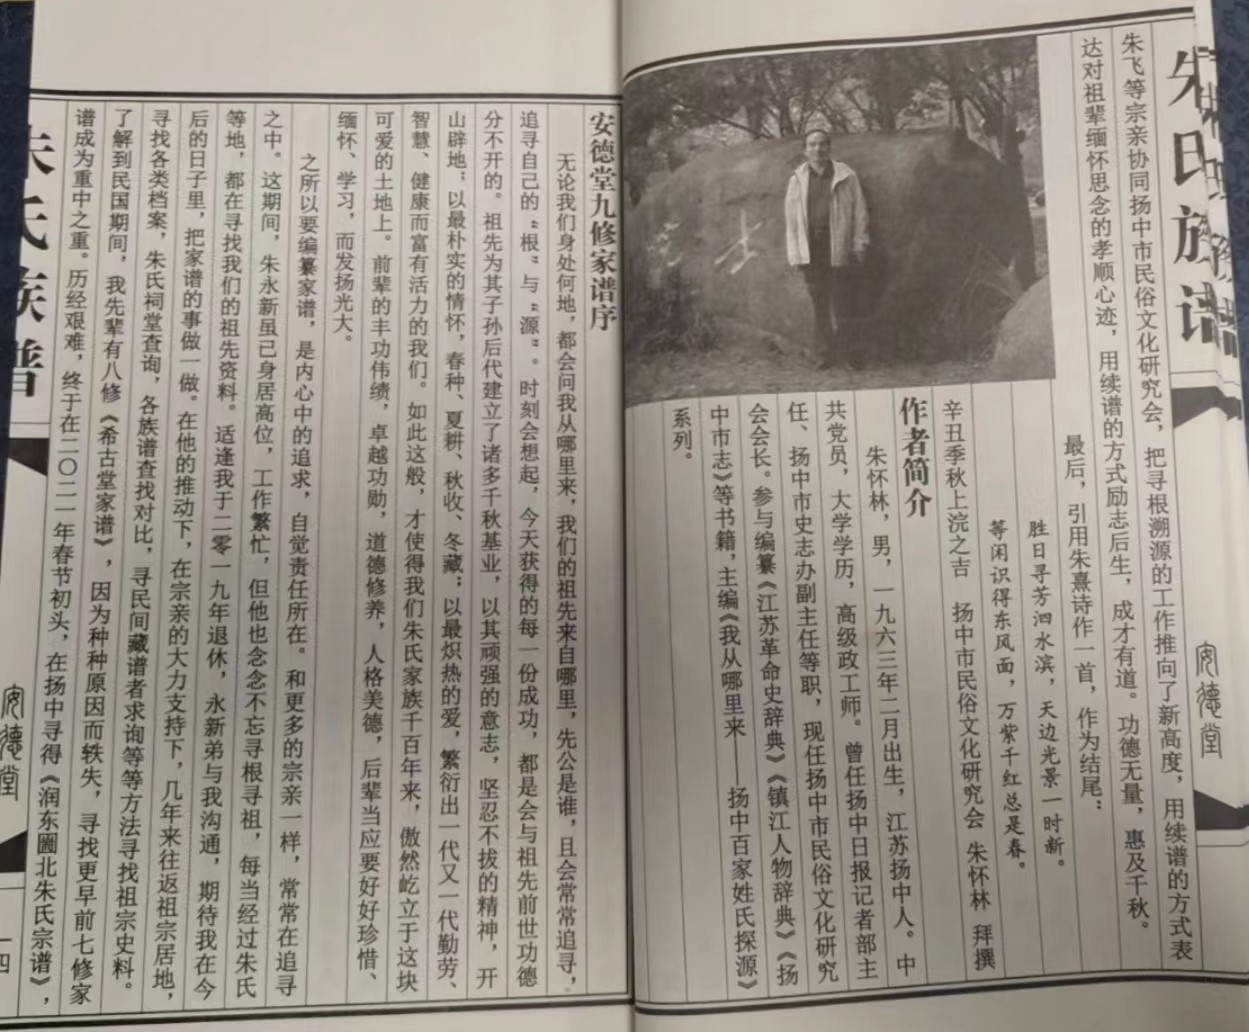 朱氏族谱
安德堂
朱飞等宗亲协同扬中市民俗文化研究会，把寻根溯源的工作推向了新高度，用续谱的方式表
达对祖辈缅怀思念的孝顺心迹，用续谱的方式励志后生，成才有道。功德无量，惠及千秋。
最后，引用朱熹诗作一首，作为结尾：
胜日寻芳泗水滨，天边光景一时新。
等闲识得东风面，万紫千红总是春。
辛丑季秋上浣之吉　扬中市民俗文化研究会　朱怀林　拜撰
作者简介
朱怀林，男，一九六三年二月出生，江苏扬中人。中
共党员，大学学历，高级政工师。曾任扬中日报记者部主
任、扬中市史志办副主任等职，现任扬中市民俗文化研究
会会长。参与编纂《江苏革命史辞典》《镇江人物辞典》《扬
中市志》等书籍，主编《我从哪里来——扬中百家姓氏探源》
系列。
安德堂九修家谱序
无论我们身处何地，都会问我从哪里来，我们的祖先来自哪里，先公是谁，且会常常追寻，
追寻自己的“根”与“源”。时刻会想起，今天获得的每一份成功，都是会与祖先前世功德
分不开的。祖先为其子孙后代建立了诸多千秋基业，以其顽强的意志，坚忍不拔的精神，开
山辟地；以最朴实的情怀，春种、夏耕、秋收、冬藏；以最炽热的爱，繁衍出一代又一代勤劳、
智慧、健康而富有活力的我们。如此这般，才使得我们朱氏家族千百年来，傲然屹立于这块
可爱的土地上。前辈的丰功伟绩，卓越功勋，道德修养，人格美德，后辈当应要好好珍惜、
缅怀、学习，而发扬光大。
之所以要编纂家谱，是内心中的追求，自觉责任所在。和更多的宗亲一样，常常在追寻
之中。这期间，朱永新虽已身居高位，工作繁忙，但他也念念不忘寻根寻祖，每当经过朱氏
等地，都在寻找我们的祖先资料。适逢我于二零一九年退休，永新弟与我沟通，期待我在今
后的日子里，把家谱的事做一做。在他的推动下，在宗亲的大力支持下，几年来往返祖宗居地，
寻找各类档案，朱氏祠堂查询，各族谱查找对比，寻民间藏谱者求询等等方法寻找祖宗史料。
了解到民国期间，我先辈有八修《希古堂家谱》，因为种种原因而轶失，寻找更早前七修家
谱成为重中之重。历经艰难，终于在二〇二一年春节初头，在扬中寻得《润东圌北朱氏宗谱》，
朱氏族谱
安德堂
一四